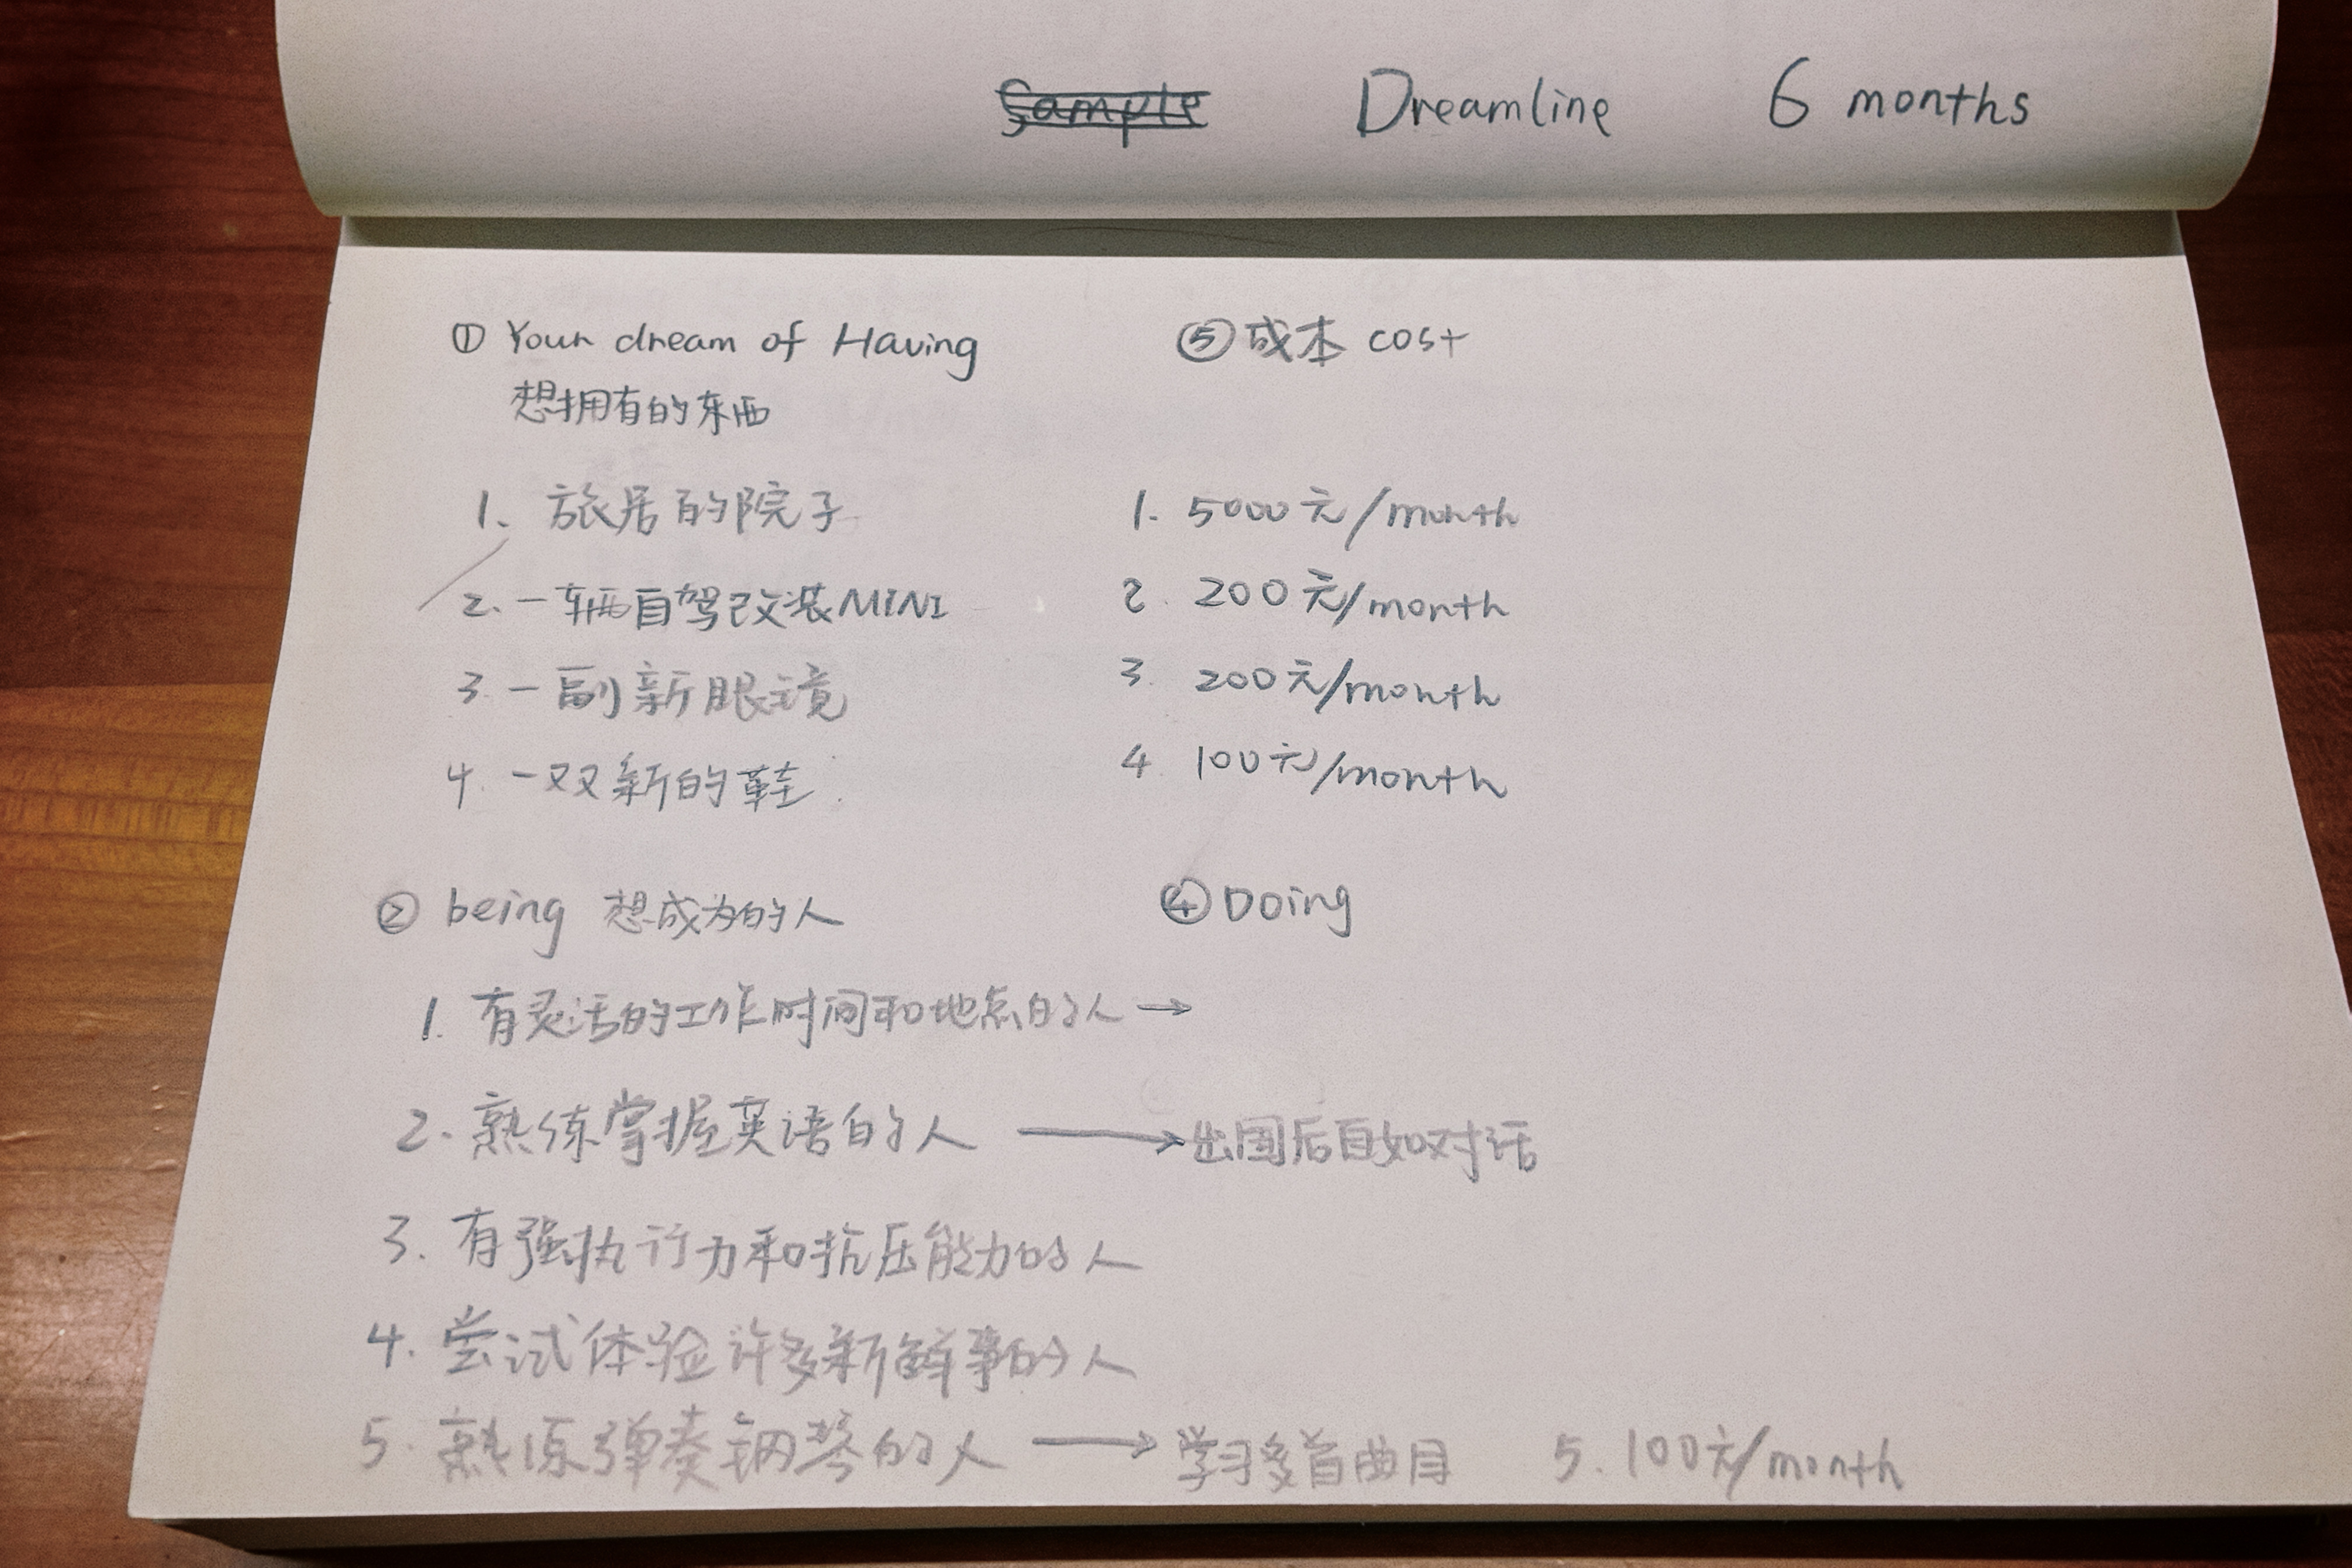 Sample Dreamline 6 months
① Your dream of Having
想拥有的东西
⑤成本 cost
1、旅居的院子
1. 5000元/month
2. 一辆自驾改装MINI
2. 200元/month
3. 一副新眼镜
3. 200元/month
4. 一双新的鞋
4 100元/month
② being 想成为的人
④Doing
1. 有灵活的工作时间和地点的人 →
2. 熟练掌握英语的人 → 出国后自如对话
3. 有强执行力和抗压能力的人
4. 尝试体验许多新鲜事的人
5. 熟练弹奏钢琴的人 → 学习多首曲目 5. 100元/month